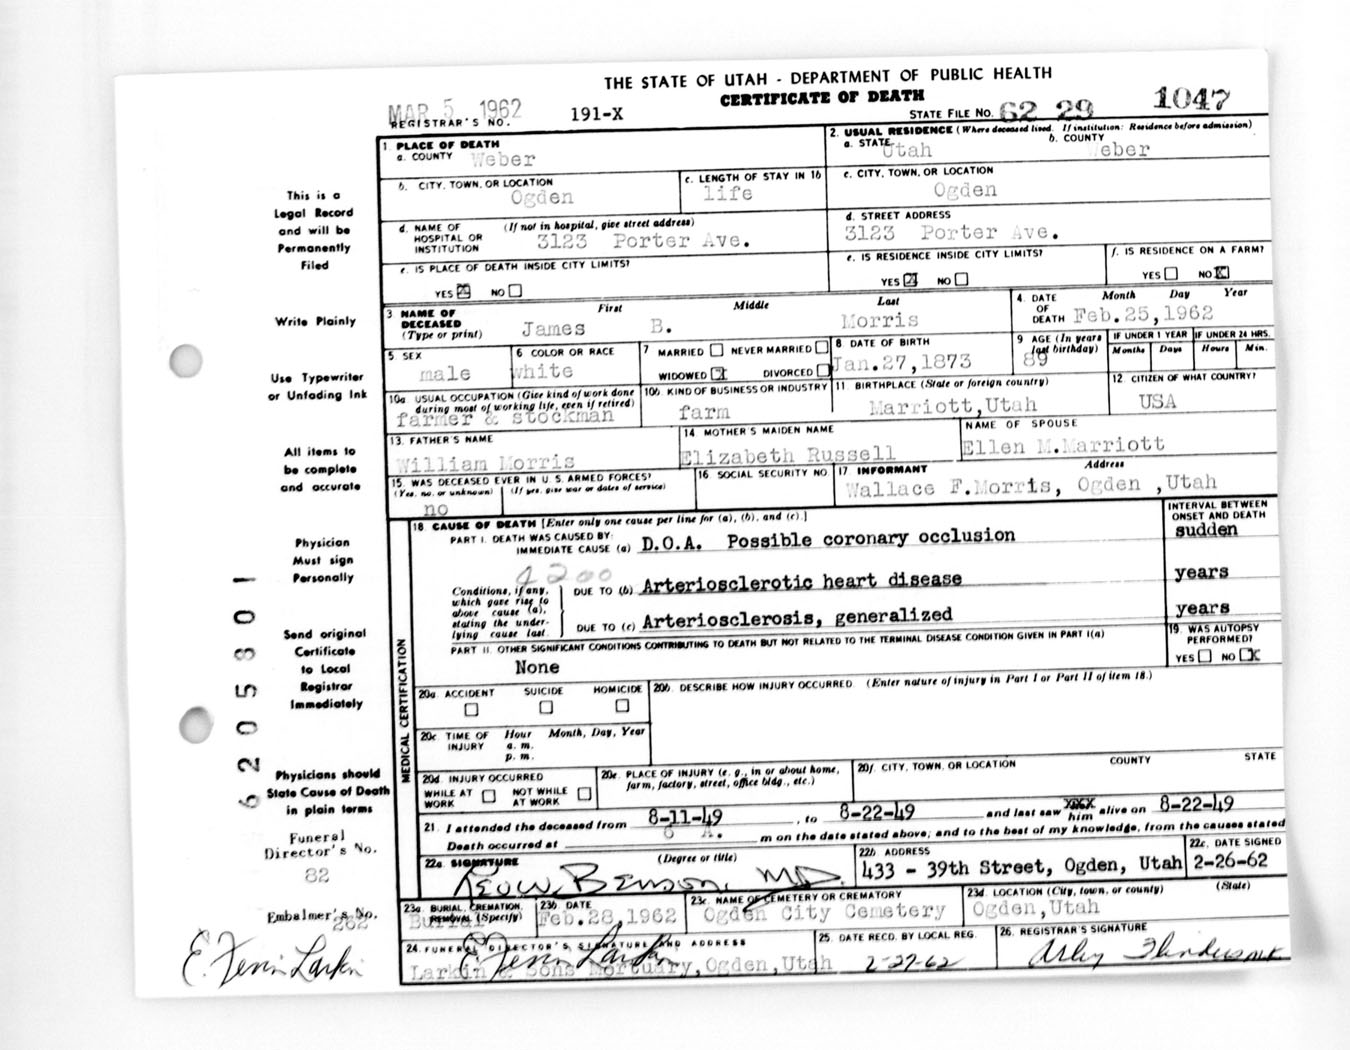 THE STATE OF UTAH - DEPARTMENT OF PUBLIC HEALTH
CERTIFICATE OF DEATH
MAR 5 1962
REGISTRAR'S NO. 191-X
STATE FILE NO. 62 29 1047
This is a
Legal Record
and will be
Permanently
Filed
Write Plainly
Use Typewriter
or Unfading Ink
All items to
be complete
and accurate
Physician
Must sign
Personally
Send original
Certificate
to Local
Registrar
Immediately
Physicians should
State Cause of Death
in plain terms
Funeral
Director's No.
82
Embalmer's No.
262
E. Fenin Larkin
620530 1
1. PLACE OF DEATH
a. COUNTY Weber
2. USUAL RESIDENCE (Where deceased lived. If institution: Residence before admission)
a. STATE Utah b. COUNTY Weber
b. CITY, TOWN, OR LOCATION Ogden
c. LENGTH OF STAY IN 1b life
c. CITY, TOWN, OR LOCATION Ogden
d. NAME OF HOSPITAL OR INSTITUTION (If not in hospital, give street address) 3123 Porter Ave.
d. STREET ADDRESS 3123 Porter Ave.
e. IS PLACE OF DEATH INSIDE CITY LIMITS?
YES X NO
e. IS RESIDENCE INSIDE CITY LIMITS?
YES X NO
f. IS RESIDENCE ON A FARM?
YES NO X
3. NAME OF DECEASED (Type or print) First James Middle B. Last Morris
4. DATE OF DEATH Month Day Year Feb.25,1962
5. SEX male
6. COLOR OR RACE white
7. MARRIED NEVER MARRIED
WIDOWED X DIVORCED
8. DATE OF BIRTH Jan.27,1873
9. AGE (In years last birthday) 89
IF UNDER 1 YEAR Months Days
IF UNDER 24 HRS. Hours Min.
10a. USUAL OCCUPATION (Give kind of work done during most of working life, even if retired) farmer & stockman
10b. KIND OF BUSINESS OR INDUSTRY farm
11. BIRTHPLACE (State or foreign country) Marriott,Utah
12. CITIZEN OF WHAT COUNTRY? USA
13. FATHER'S NAME William Morris
14. MOTHER'S MAIDEN NAME Elizabeth Russell
NAME OF SPOUSE Ellen M.Marriott
15. WAS DECEASED EVER IN U.S. ARMED FORCES?
(Yes, no, or unknown) (If yes, give war or dates of service)
no
16. SOCIAL SECURITY NO.
17. INFORMANT Address
Wallace F.Morris, Ogden ,Utah
MEDICAL CERTIFICATION
18. CAUSE OF DEATH [Enter only one cause per line for (a), (b), and (c).]
INTERVAL BETWEEN ONSET AND DEATH
PART I. DEATH WAS CAUSED BY:
IMMEDIATE CAUSE (a) D.O.A. Possible coronary occlusion sudden
4200
Conditions, if any, which gave rise to above cause (a), stating the underlying cause last.
DUE TO (b) Arteriosclerotic heart disease years
DUE TO (c) Arteriosclerosis, generalized years
PART II. OTHER SIGNIFICANT CONDITIONS CONTRIBUTING TO DEATH BUT NOT RELATED TO THE TERMINAL DISEASE CONDITION GIVEN IN PART I(a)
None
19. WAS AUTOPSY PERFORMED?
YES NO X
20a. ACCIDENT SUICIDE HOMICIDE
20b. DESCRIBE HOW INJURY OCCURRED. (Enter nature of injury in Part I or Part II of item 18.)
20c. TIME OF INJURY Hour Month, Day, Year
a. m.
p. m.
20d. INJURY OCCURRED
WHILE AT WORK NOT WHILE AT WORK
20e. PLACE OF INJURY (e. g., in or about home, farm, factory, street, office bldg., etc.)
20f. CITY, TOWN, OR LOCATION COUNTY STATE
21. I attended the deceased from 8-11-49, to 8-22-49 and last saw xxx him alive on 8-22-49
Death occurred at 8 A. m on the date stated above; and to the best of my knowledge, from the causes stated
22a. SIGNATURE (Degree or title)
Leo W. Benson, M.D.
22b. ADDRESS
433 - 39th Street, Ogden, Utah
22c. DATE SIGNED
2-26-62
23a. BURIAL, CREMATION, REMOVAL (Specify) Burial
23b. DATE Feb.28,1962
23c. NAME OF CEMETERY OR CREMATORY Ogden City Cemetery
23d. LOCATION (City, town, or county) (State) Ogden,Utah
24. FUNERAL DIRECTOR'S SIGNATURE AND ADDRESS
E. Fenin Larkin
Larkin & Sons Mortuary,Ogden,Utah
25. DATE RECD. BY LOCAL REG.
2-27-62
26. REGISTRAR'S SIGNATURE